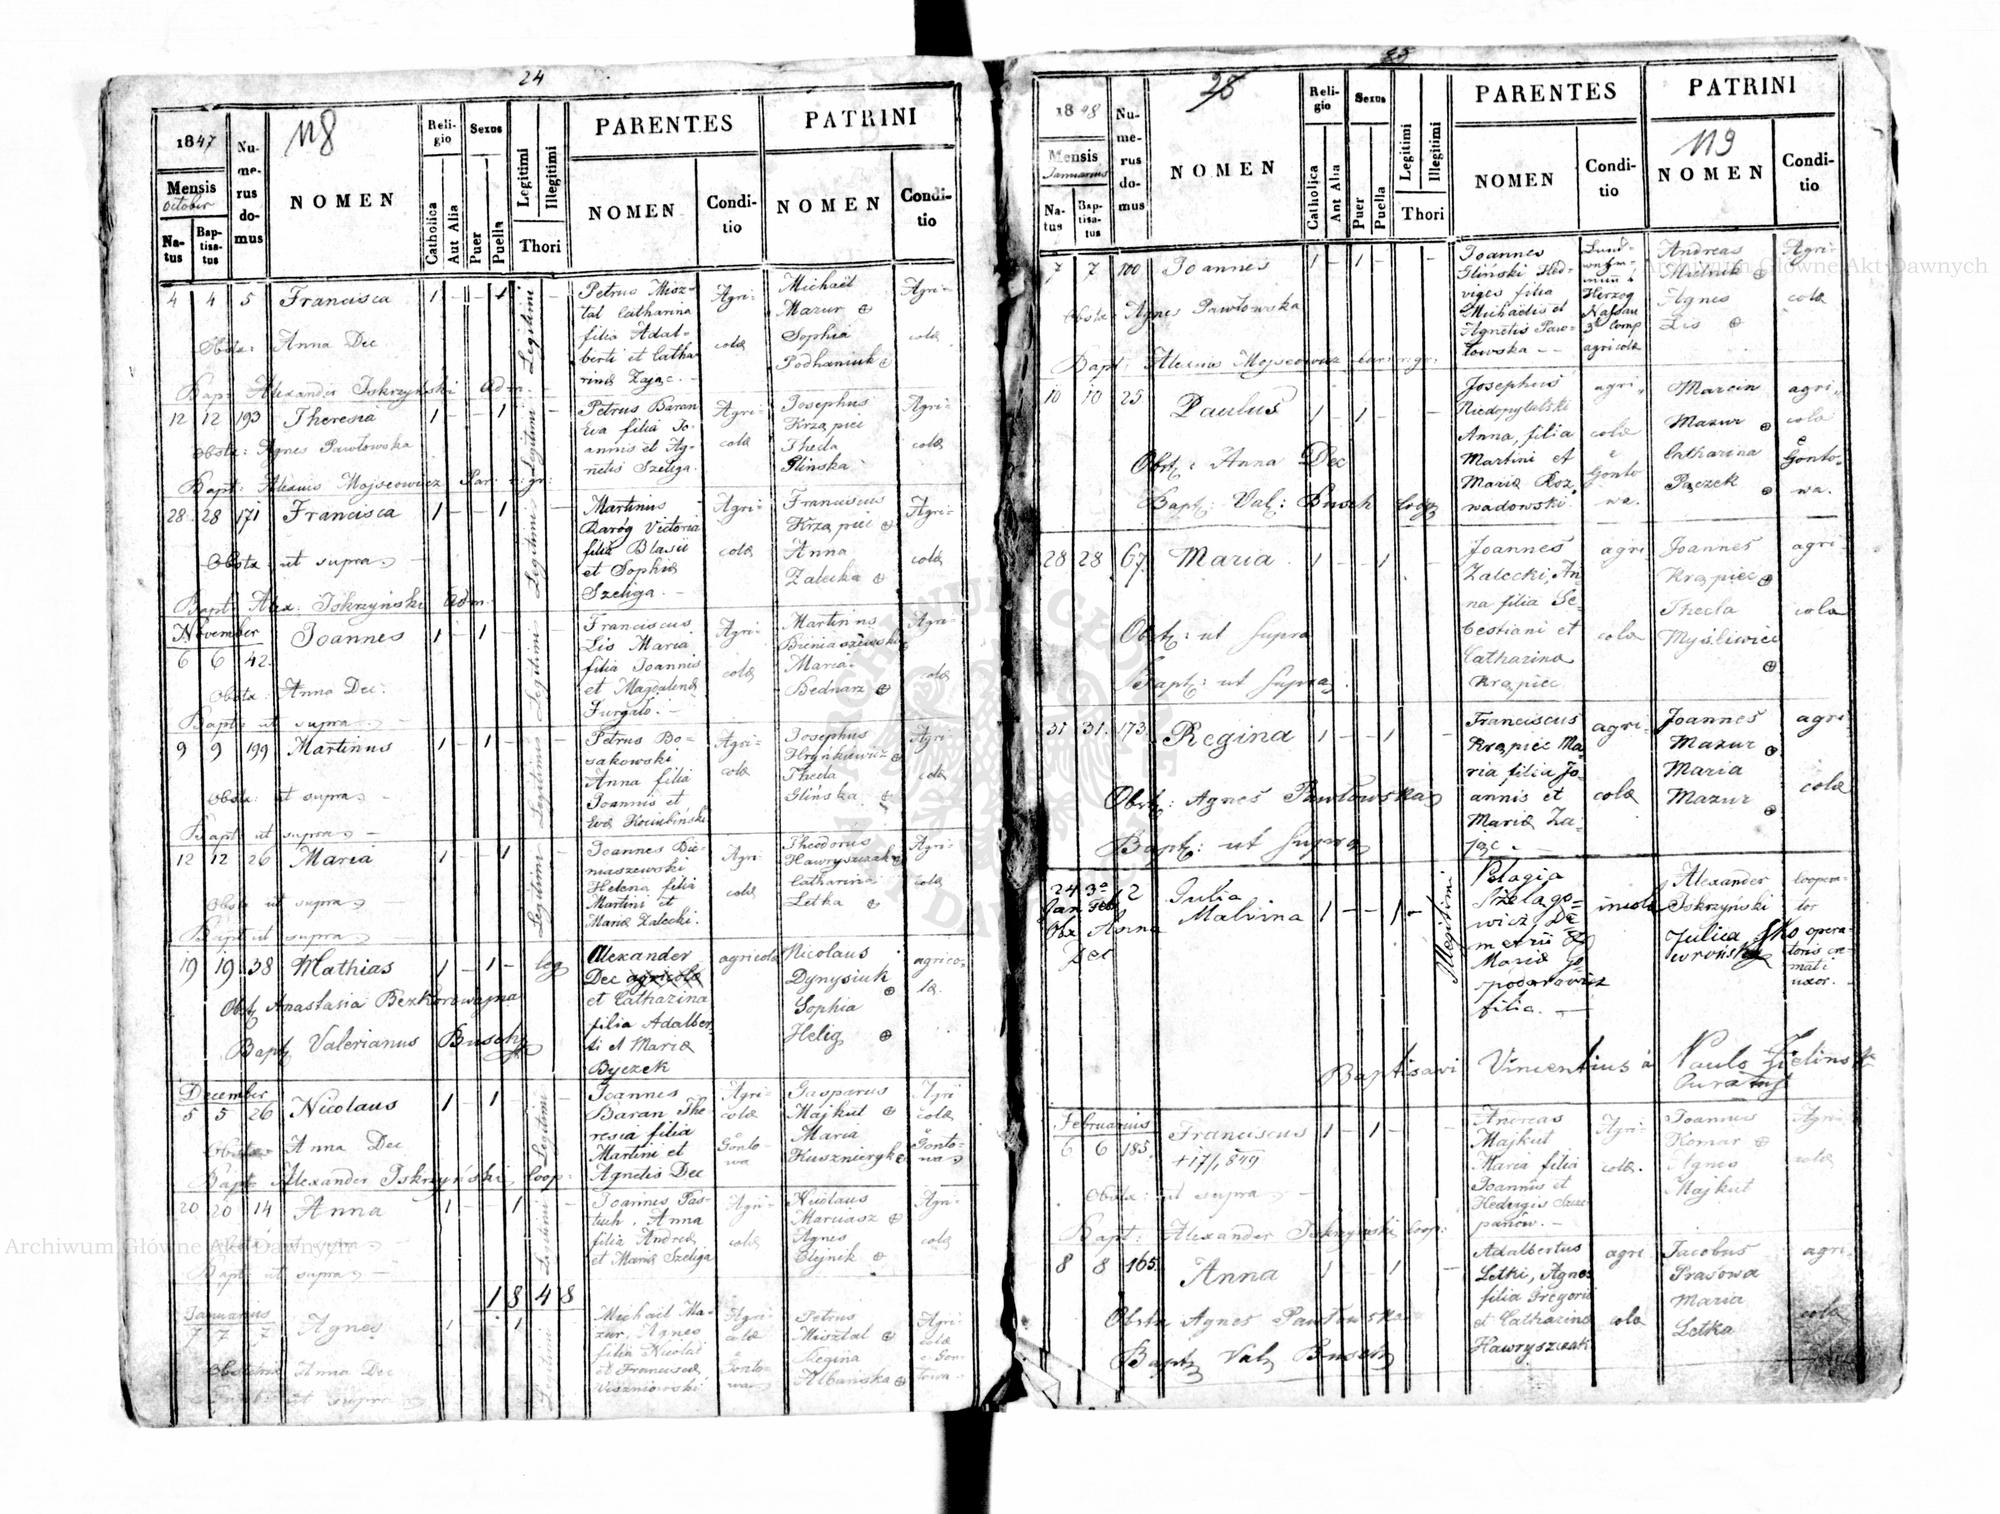 24
1847
Mensis
October
Na-
tus
Bap-
tisa-
tus
Nu-
me-
rus
do-
mus
118
NOMEN
Reli-
gio
Catholica
Aut Alia
Sexus
Puer
Puella
Legitimi
Illegitimi
Thori
PARENTES
NOMEN
Condi-
tio
PATRINI
NOMEN
Condi-
tio
4 4 5 Francisca 1 - - 1 Legitimi -
Obstx: Anna Dec
Bapt: Alexander Iskrzyński Adm.
Petrus Misz-
tal Catharina
filia Adal-
berti et Catha
rinæ Zając. -
Agri-
colæ
Michaël
Mazur
Sophia
Podhaniuk
Agri-
colæ
12 12 193 Theresia 1 - - 1 Legitimi -
Obstx: Agnes Pawłowska
Bapt: Alexius Mojseowicz Par: r: gr:
Petrus Baran
Eva filia Jo-
annis et Ag-
netis Szeliga.
Agri-
colæ
Josephus
Krząpiec
Thecla
Glinska
Agri-
colæ
28 28 171 Francisca 1 - - 1 Legitimi -
Obstx: ut supra -
Bapt: Alex. Iskrzyński Adm.
Martinus
Raróg Victoria
filia Blasii
et Sophiæ
Szeliga. -
Agri-
colæ
Franciscus
Krząpiec
Anna
Zalecka
Agri-
colæ
November
6 6 42. Joannes 1 - 1 - Legitimi
Obstx: Anna Dec.
Bapt: ut supra -
Franciscus
Lis Maria
filia Joannis
et Magdalenæ
Furgało. -
Agri-
colæ
Martinus
Bieniaszewski
Maria
Bednarz
Agri-
colæ
9 9 199 Martinus 1 - 1 - Legitimus
Obstx: ut supra -
Bapt: ut supra -
Petrus Bo-
sakowski
Anna filia
Joannis et
Evæ Kociubiński
Agri-
colæ
Josephus
Hryńkiewicz
Thecla
Glińska
Agri-
colæ
12 12 26 Maria 1 - - 1 Legitimi
Obstx ut supra -
Bapt ut supra -
Joannes Bie-
niaszewski
Helena filia
Martini et
Mariæ Zalecki.
Agri-
colæ
Theodorus
Hawryszczak
Catharina
Letka
Agri-
colæ
19 19 38 Mathias 1 - 1 - leg
Obst Anastasia Bezkorowajna
Bapt Valerianus Busch
Alexander
Dec agricola
et Catharina
filia Adalber
ti et Mariæ
Byczek
agricola
Nicolaus
Dynysiuk
Sophia
Helig
agrico-
la.
December
5 5 26 Nicolaus 1 - 1 - Legitimi
Obstx Anna Dec
Bapt Alexander Iskrzyński, Coop.
Joannes
Baran The
resia filia
Martini et
Agnetis Dec
Agri-
colæ
e
Gonto-
wa
Gasparus
Majkut
Maria
Kuszneryk
Agri
colæ
e
Gonto-
wa
20 20 14 Anna 1 - - 1 Legitimi -
Bapt: ut supra -
Joannes Pas-
tuch, Anna
filia Andreæ
et Mariæ Szeliga
Agri-
colæ
Nicolaus
Marciasz
Agnes
Olejnik
Agri-
colæ
1848
Januarius
7 7 7 Agnes 1 1 Legitimi
Obstetrix Anna Dec
Bapt: ut supra
Michaël Ma-
zur, Agnes
filia Nicolai
et Franciscæ
Wiszniowski
Agri-
colæ
e
Gonto-
wa
Petrus
Misztal
Regina
Albańska
Agri-
colæ
e Gon-
towa -
25
1848
Mensis
Januarius
Na-
tus
Bap-
tisa-
tus
Nu-
me-
rus
do-
mus
NOMEN
Reli-
gio
Catholica
Ant Alia
Sexus
Puer
Puella
Legitimi
Illegitimi
Thori
PARENTES
NOMEN
Condi-
tio
PATRINI
119
NOMEN
Condi-
tio
7 7 100 Joannes 1 - 1 - -
Obstx: Agnes Pawłowska
Bapt: Alexius Mojseowicz Par: r: gr:
Joannes
Gliński Hed-
viges filia
Michaelis et
Agnetis Paw-
łowska - -
Herzog
Nassau
3 Comp
agricolæ
Andreas
Mielnik
Agnes
Lis
Agri-
colæ
10 10 25 Paulus 1 - 1 - -
Obst: Anna Dec
Bapt: Val: Busch Coop
Josephus
Niedopytalski
Anna, filia
Martini et
Mariæ Roz
wadowski.
agri-
colæ
e
Gonto
wa.
Marcin
Mazur
Catharina
Pączek
agri-
cola
e
Gonto-
wa.
28 28 67 Maria 1 - - 1 -
Obst: ut supra
Bapt: ut supra
Joannes
Zalecki, An-
na filia Se-
bestiani et
Catharinæ
Krąpiec
agri
colæ
Joannes
Krąpiec
Thecla
Myśliwiec
agri-
cola
31 31. 173. Regina 1 - - 1 -
Obst: Agnes Pawłowska
Bapt: ut supra
Franciscus
Krąpiec Ma
ria filia Jo-
annis et
Mariæ Za-
jąc -
agri-
colæ
Joannes
Mazur
Maria
Mazur
agri-
colæ
24 3º 12 Julia
Jan Feb Malvina 1 - - 1 - Illegitimi
Obx Anna
Dec
Pelagia
Strzelago-
wicz, De-
metrii &
Mariæ Go-
spodarowicz
filia. -
incola
Alexander
Iskrzyński
Julia Sko
wrońska
Coopera-
tor
operat-
toris cre-
mati
uxor.
Baptisavi Vincentius à Paulo Zielinski
Curatus
Februarius
6 6 185. Franciscus 1 - 1 - -
+17/1 849
Obstx: ut supra -
Bapt: Alexander Iskrzyński Coop:
Andreas
Majkut
Maria filia
Joannis et
Hedvigis Szcze
panów. -
Agri-
colæ.
Joannes
Komar
Agnes
Majkut
Agri-
colæ
8 8 165 Anna 1 - - 1 -
Obstx Agnes Pawłowska
Bapt Val Busch
Adalbertus
Letki, Agnes
filia Gregorii
et Catharinæ
Hawryszczak
agri
cola
Jacobus
Prasowa
Maria
Letka
agri-
cola
Archiwum Główne Akt Dawnych
Archiwum Główne Akt Dawnych
ARCHIWUM GŁÓWNE AKT DAWNYCH